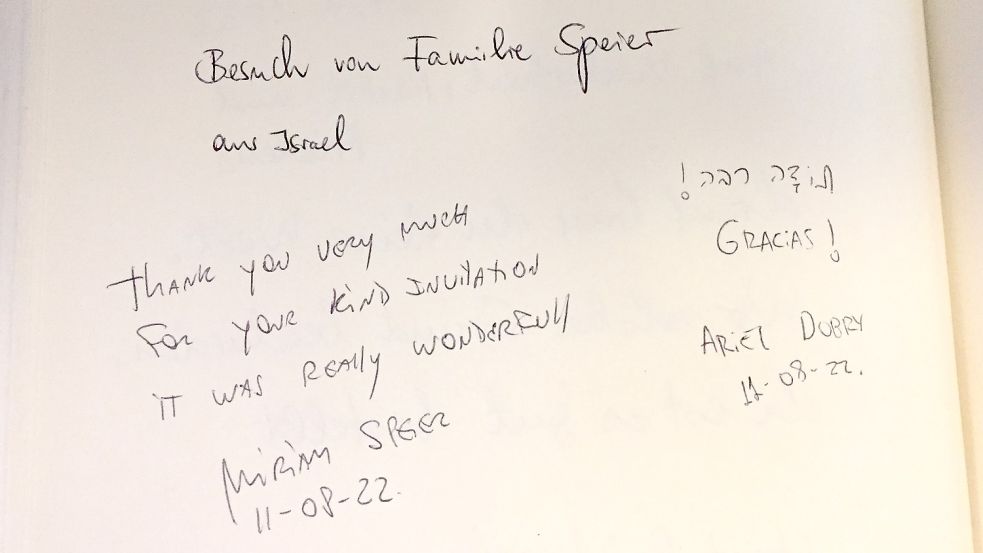 Besuch von Familie Speier
aus Israel
THANK YOU VERY MUCH
FOR YOUR KIND INVITATION
IT WAS REALLY WONDERFULL
MIRIAM SPEIER
11-08-22.
תודה רבה!
GRACIAS!
ARIEL DUBRY
11-08-22.